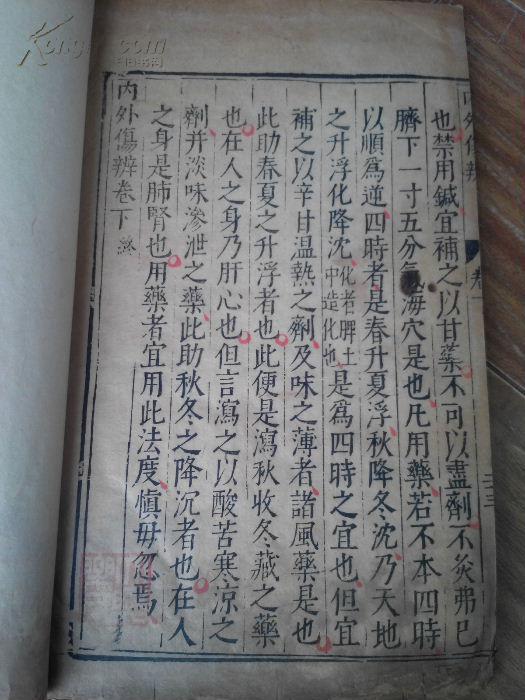 內外傷辨
卷
也禁用鍼宜補之以甘藥不可以盡劑不灸弗已
臍下一寸五分氣海穴是也凡用藥若不本四時
以順爲逆四時者是春升夏浮秋降冬沈乃天地
之升浮化降沈化者脾土中造化也是爲四時之宜也但宜
補之以辛甘溫熱之劑及味之薄者諸風藥是也
此助春夏之升浮者也此便是瀉秋收冬藏之藥
也在人之身乃肝心也但言瀉之以酸苦寒涼之
劑并淡味滲泄之藥此助秋冬之降沉者也在人
之身是肺腎也用藥者宜用此法度慎毋忽焉
內外傷辨卷下終